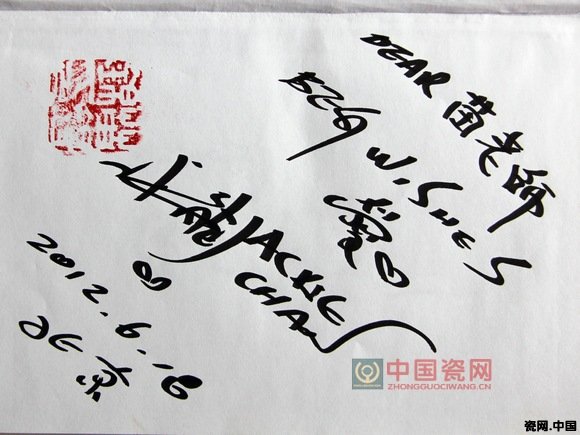 DEAR 苗老师
BEST WISHES
爱心
成龙 JACKIE
CHAN
2012.6.16
北京
中国瓷网
ZHONGGUOCIWANG.CN
瓷网.中国